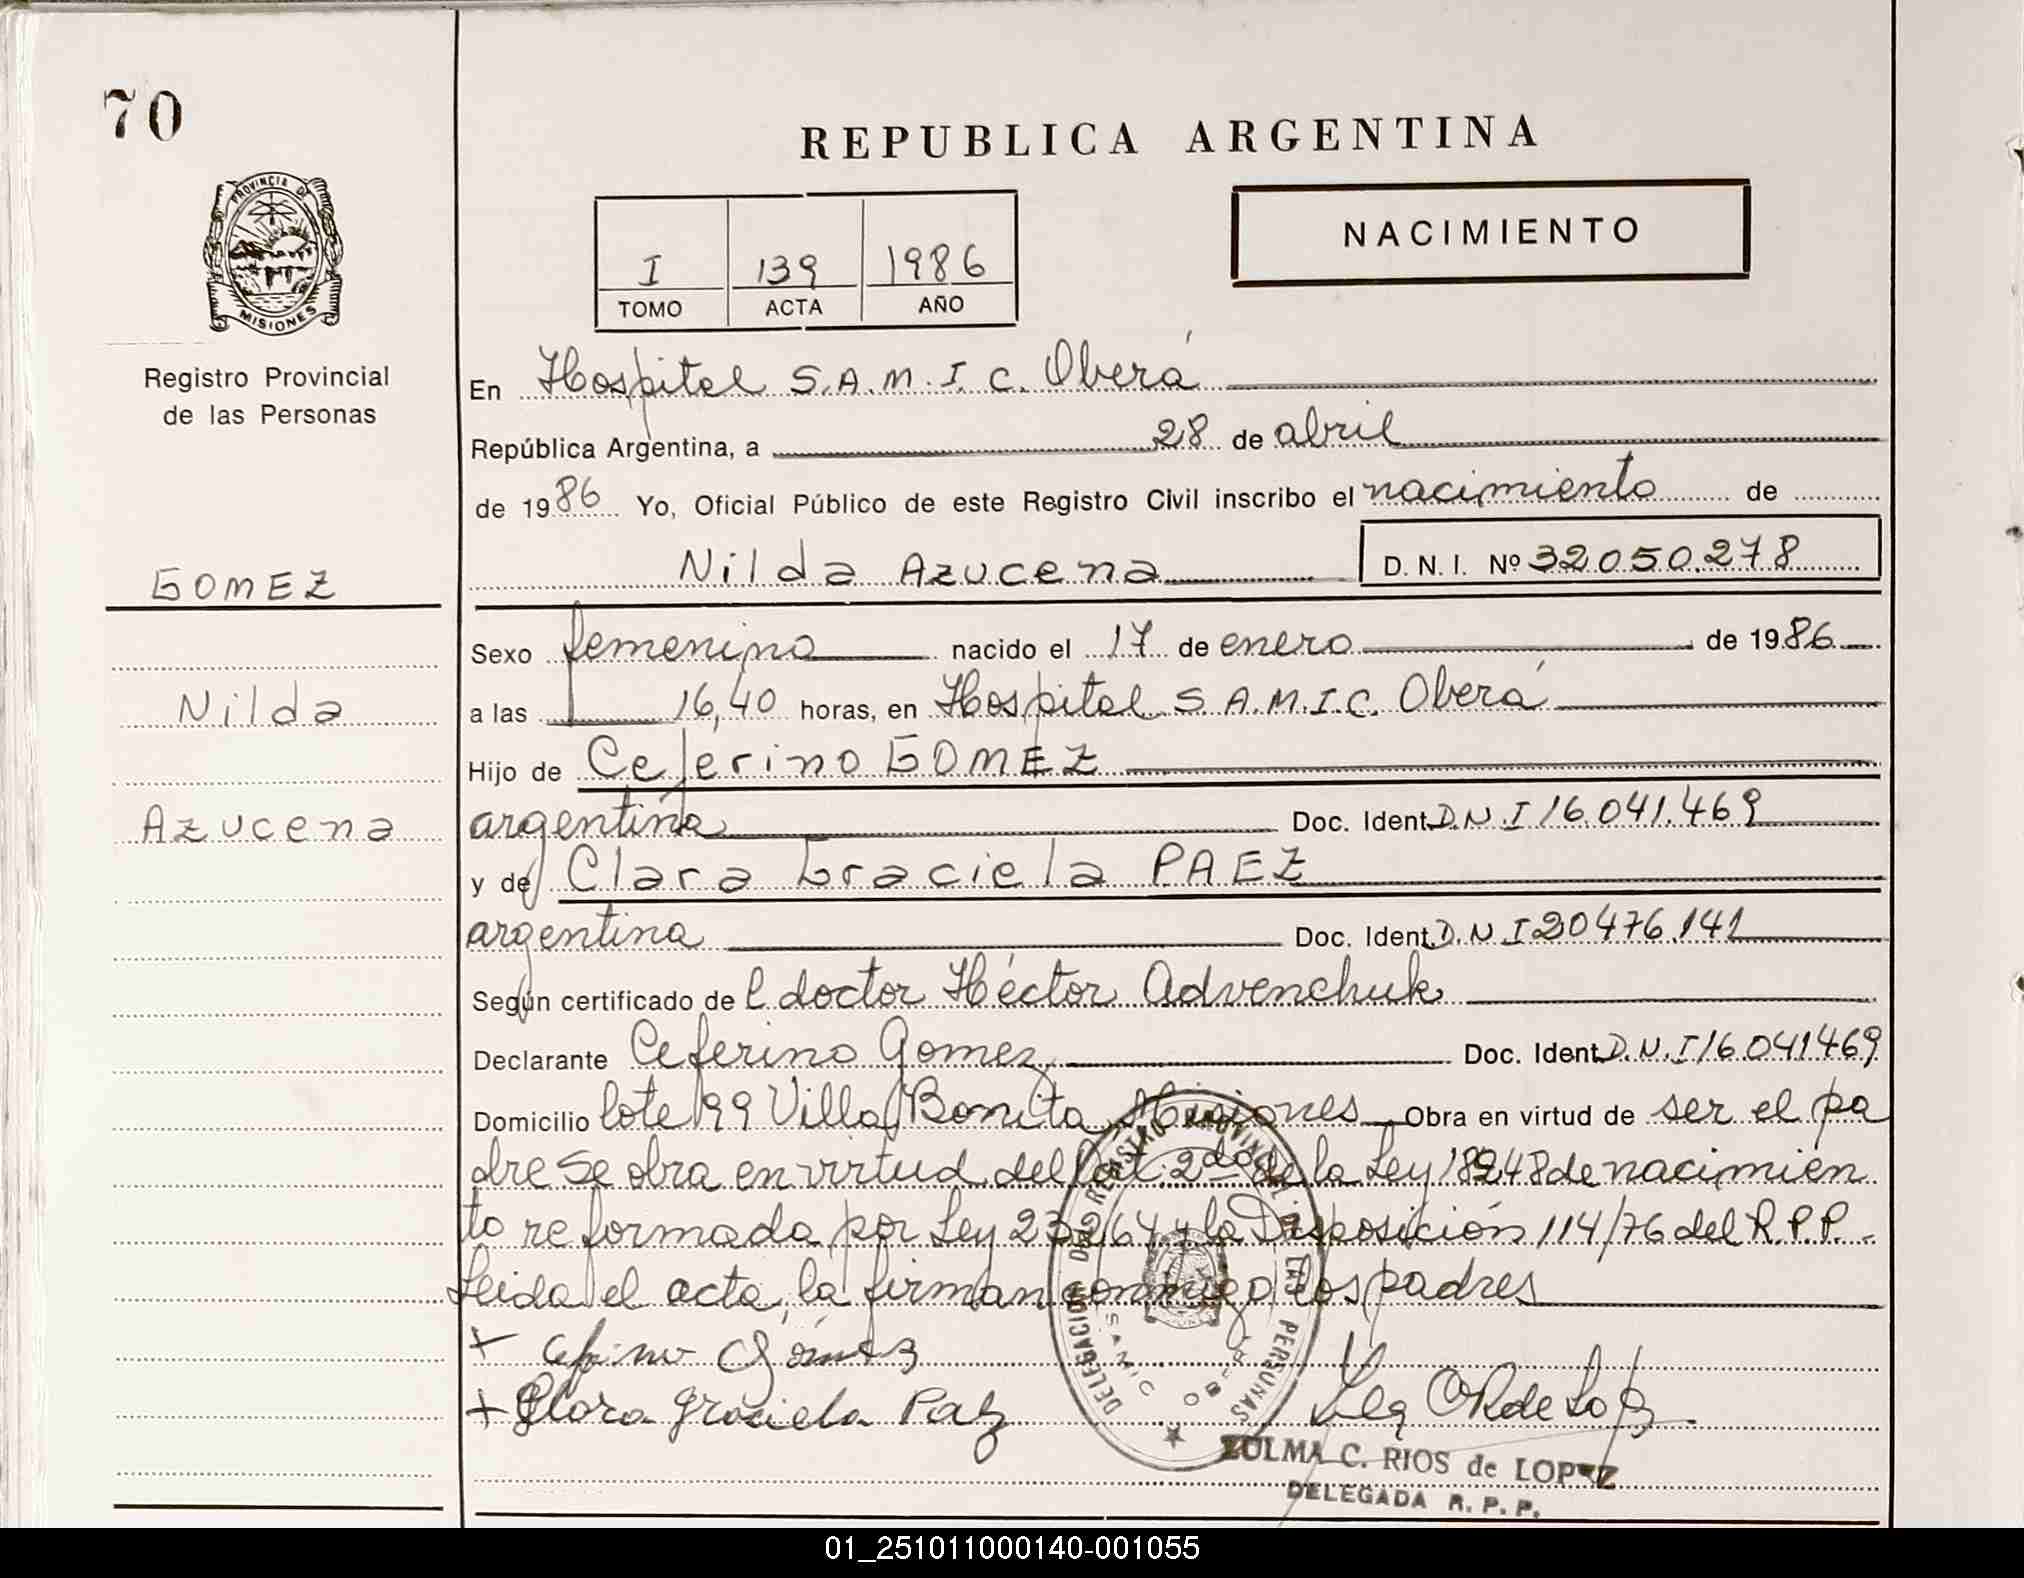 70
REPUBLICA ARGENTINA
PROVINCIA DE
MISIONES
NACIMIENTO
I 139 1986
TOMO ACTA AÑO
Registro Provincial
de las Personas
En Hospital S.A.M.I.C. Oberá
República Argentina, a 28 de abril
de 1986 Yo, Oficial Público de este Registro Civil inscribo el nacimiento de
Nilda Azucena D. N. I. Nº 32050.278
GOMEZ
Sexo femenino nacido el 17 de enero de 1986
Nilda
a las 16,40 horas, en Hospital S.A.M.I.C. Oberá
Hijo de Ceferino GOMEZ
Azucena
argentina Doc. Ident. D.N.I 16.041.469
y de Clara Graciela PAEZ
argentina Doc. Ident. D.N.I 20476.141
Según certificado de l doctor Héctor Advenchuk
Declarante Ceferino Gomez Doc. Ident. D.N.I 16041469
Domicilio lote 99 Villa Bonita Misiones Obra en virtud de ser el pa
dre se obra en virtud del 2do de la Ley 18248 de nacimien
to reformada por Ley 23264 y la Disposición 114/76 del R.P.P.
Leida el acta, la firman conmigo los padres
+ Gómez
+ Clara Graciela Paez
DELEGACION DEL REGISTRO PROVINCIAL DE LAS PERSONAS
SAMIC OBERA
ZULMA C. RIOS de LOPEZ
DELEGADA R. P. P.
01_251011000140-001055